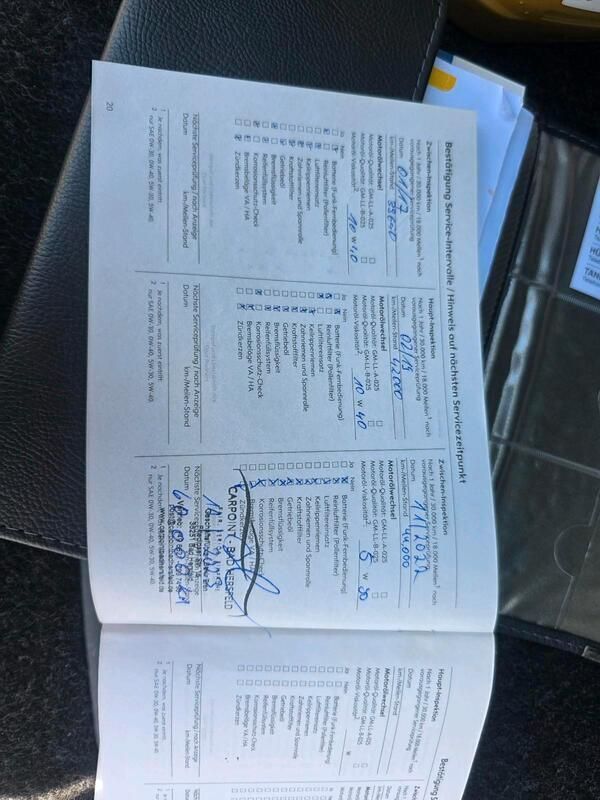 Bestätigung Service-Intervalle / Hinweis auf nächsten Servicezeitpunkt
Zwischen-Inspektion
Nach 1 Jahr / 30.000 km / 18.000 Meilen¹ nach
vorausgegangener Serviceprüfung
Datum 01/17
km-/Meilen-Stand
Motorölwechsel
Motoröl-Qualität: GM-LL-A-025
Motoröl-Qualität: GM-LL-B-025
Motoröl-Viskosität² 10 W 40
Ja Nein
Batterie (Funk-Fernbedienung)
Reinluftfilter (Pollenfilter)
Luftfiltereinsatz
Keilrippenriemen
Zahnriemen und Spannrolle
Kraftstofffilter
Getriebeöl
Bremsflüssigkeit
Reifenfüllsystem
Korrosionsschutz-Check
Bremsbeläge VA / HA
Zündkerzen
Nächste Serviceprüfung / nach Anzeige
Datum km-/Meilen-Stand
1 Je nachdem, was zuerst eintritt.
2 nur SAE 0W-30, 0W-40, 5W-30, 5W-40.
20
Haupt-Inspektion
Nach 1 Jahr / 30.000 km / 18.000 Meilen¹ nach
vorausgegangener Serviceprüfung
Datum 02/19
km-/Meilen-Stand 42000
Motorölwechsel
Motoröl-Qualität: GM-LL-A-025
Motoröl-Qualität: GM-LL-B-025
Motoröl-Viskosität² 10 W 40
Ja Nein
Batterie (Funk-Fernbedienung)
Reinluftfilter (Pollenfilter)
Luftfiltereinsatz
Keilrippenriemen
Zahnriemen und Spannrolle
Kraftstofffilter
Getriebeöl
Bremsflüssigkeit
Reifenfüllsystem
Korrosionsschutz-Check
Bremsbeläge VA / HA
Zündkerzen
Nächste Serviceprüfung / nach Anzeige
Datum km-/Meilen-Stand
1 Je nachdem, was zuerst eintritt.
2 nur SAE 0W-30, 0W-40, 5W-30, 5W-40.
Zwischen-Inspektion
Nach 1 Jahr / 30.000 km / 18.000 Meilen¹ nach
vorausgegangener Serviceprüfung
Datum 11/2022
km-/Meilen-Stand 44.000
Motorölwechsel
Motoröl-Qualität: GM-LL-A-025
Motoröl-Qualität: GM-LL-B-025
Motoröl-Viskosität² 5 W 30
Ja Nein
Batterie (Funk-Fernbedienung)
Reinluftfilter (Pollenfilter)
Luftfiltereinsatz
Keilrippenriemen
Zahnriemen und Spannrolle
Kraftstofffilter
Getriebeöl
Bremsflüssigkeit
Reifenfüllsystem
Korrosionsschutz-Check
CARPOINT BAD HERSFELD
Nächste
Datum
1 Je nachdem, was zuerst eintritt.
2 nur SAE 0W-30, 0W-40, 5W-30, 5W-40.
Bestätigung
Haupt-Inspektion
Nach 1 Jahr / 30.000 km / 18.000 Meilen¹ nach
vorausgegangener Serviceprüfung
Datum
km-/Meilen-Stand
Motorölwechsel
Motoröl-Qualität: GM-LL-A-025
Motoröl-Qualität: GM-LL-B-025
Motoröl-Viskosität² W
Ja Nein
Batterie (Funk-Fernbedienung)
Reinluftfilter (Pollenfilter)
Luftfiltereinsatz
Keilrippenriemen
Zahnriemen und Spannrolle
Kraftstofffilter
Getriebeöl
Bremsflüssigkeit
Reifenfüllsystem
Korrosionsschutz-Check
Bremsbeläge VA / HA
Zündkerzen
Nächste Serviceprüfung / nach Anzeige
Datum km-/Meilen-Stand
1 Je nachdem, was zuerst eintritt.
2 nur SAE 0W-30, 0W-40, 5W-30, 5W-40.